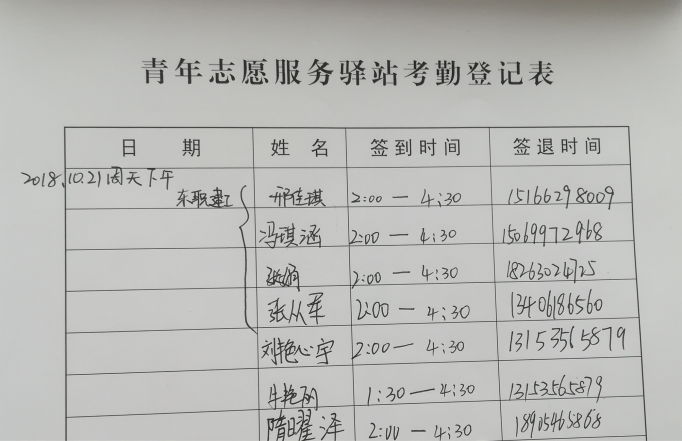 青年志愿服务驿站考勤登记表
日 期 姓 名 签到时间 签退时间
2018.10.21周天下午
东职建工 邢佳琪 2:00 — 4:30 15166298009
冯琪涵 2:00 — 4:30 15069972968
2:00 — 4:30 18263024725
张从军 2:00 — 4:30 13406186560
刘艳心宇 2:00 — 4:30 13153565879
牛艳丽 1:30 — 4:30 13153565879
隋曜泽 2:00 — 4:30 18905465868